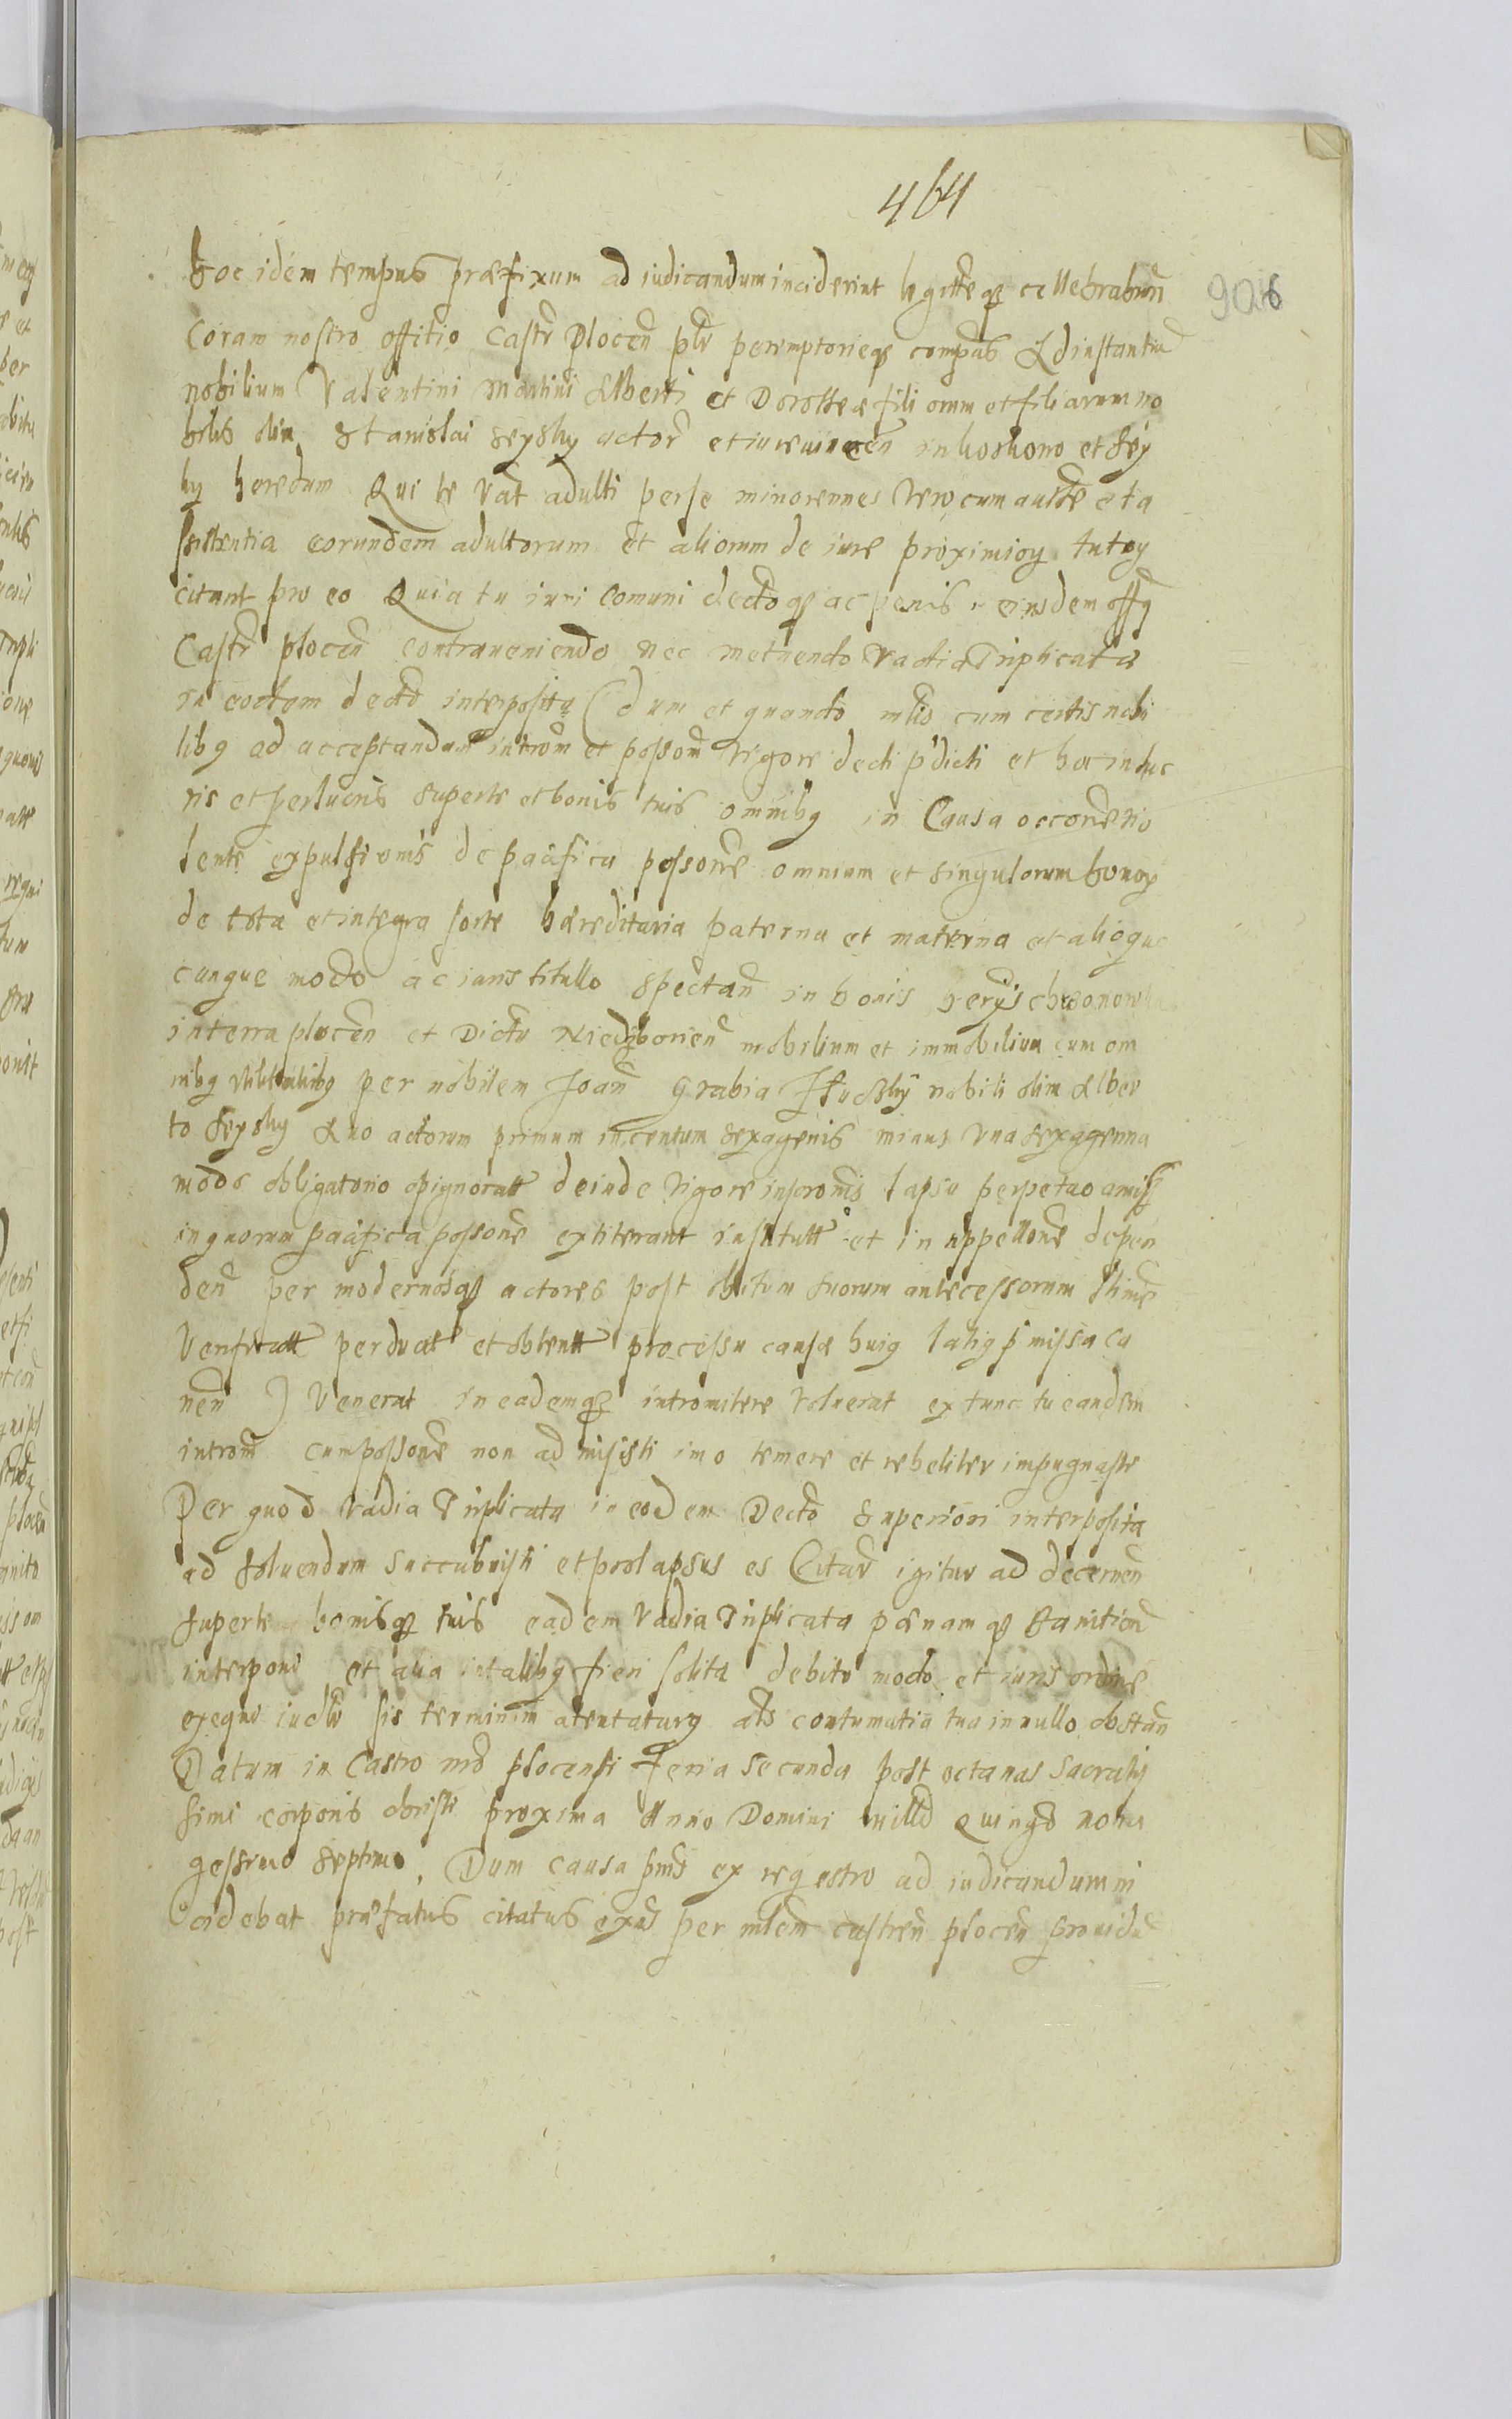 464
9026
hoc idem tempus præfixum ad iudicandum inciderint legitteqz cellebrabun
Coram nostro offitio Castr Plocen plr peremptorieqz compas Ad instantia
nobilium Valentini Martini Alberti et Dorotheæ filiorum et filiarum no
bilis olim Stanislai seysky actor et in Koskono et sey
ky heredum Qui te Vat adulti per se minorennes Vero cum autte et a
ssistentia eorundem adultorum et aliorum de iure proximior tutor
citant pro eo Quia tu iuri Comuni dectoqz ac penis eiusdem offy
Castr plocen contraveniendo nec metuendo Vadia Triplicata
in eodem decto interposita (dum et quando mlis cum certis nobi
libq ad acceptandam introm et possom Vigore decti pdicti et hoc in luc
ris et perlucris super te et bonis tuis omnibq in Causa occone vio
lente expulsionis de pacifica possone omnium et singulorum bonor
de tota et integra sorte hæreditaria paterna et materna et alioquo
cunque modo ac iuris titullo spectan in bonis
in terra plocen et Dictu Niedzborien mobilium et immobilium cum om
nibq Vtilitatibq per nobilem Joan Grabia nobili olim Alber
to seysky Auo actorum primum in centum sexagenis minus Vna sexagenna
modo obligatorio opignoratt deinde Vigore inscronis lapsu perpetuo amiss
in quorum pacifica possone extiterant et in appellone depen
den per modernosqz actores post obitum suorum antecessorum
perduct et obtentt processu causæ huiq latiq pmissa ca
nen ) Venerat in eademqz intromitere Voluerat ex tunc tu eandem
introm cum possone non admisisti imo temere et rebeliter impugnaste
Per quod Vadia Triplicata in eodem Decto superiori interposita
ad soluendum succubuisti et prolapsus es Citar igitur ad decernen
super te bonisqz tuis eadem Vadia Triplicata pænamqz banition
interponi et alia in talibq fieri solita debito modo et iuris ordine
exequi iudlr sis terminum atentaturq als contumatia tua in nullo obstan
Datum in Castro nro plocensi feria secunda post octauas Sacratis
simi corporis christi proxima Anno Domini milld quingo nona
gessimo septimo. Dum causa pnis ex regestro ad iudicandum in
cidebat præfatus citatus exns per mlem castren plocen prouidu